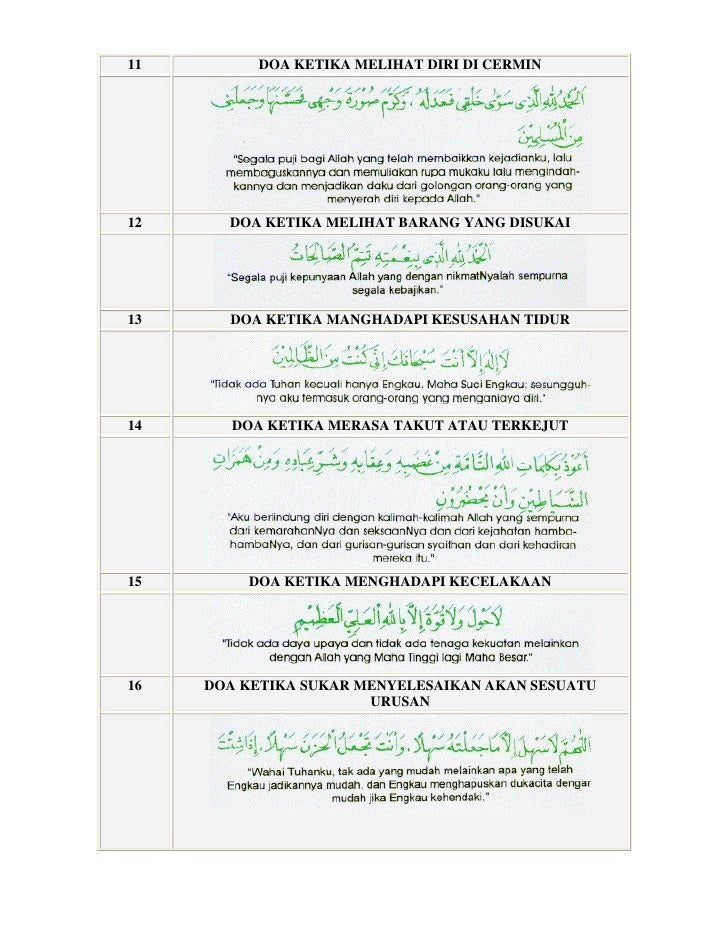 11 DOA KETIKA MELIHAT DIRI DI CERMIN
اَلْحَمْدُ لِلّٰهِ الَّذِى سَوَّى خَلْقِى فَعَدَلَهُ ، وَكَرَّمَ صُوْرَةَ وَجْهِى فَحَسَّنَهَا وَجَعَلَنِى
مِنَ الْمُسْلِمِيْنَ
"Segala puji bagi Allah yang telah membaikkan kejadianku, lalu
membaguskannya dan memuliakan rupa mukaku lalu mengindah-
kannya dan menjadikan daku dari golongan orang-orang yang
menyerah diri kepada Allah."
12 DOA KETIKA MELIHAT BARANG YANG DISUKAI
اَلْحَمْدُ لِلّٰهِ الَّذِى بِنِعْمَتِهِ تَتِمُّ الصَّالِحَاتُ
"Segala puji kepunyaan Allah yang dengan nikmatNyalah sempurna
segala kebajikan."
13 DOA KETIKA MANGHADAPI KESUSAHAN TIDUR
لَا إِلٰهَ إِلَّا أَنْتَ سُبْحَانَكَ إِنِّى كُنْتُ مِنَ الظَّالِمِيْنَ
"Tidak ada Tuhan kecuali hanya Engkau. Maha Suci Engkau; sesungguh-
nya aku termasuk orang-orang yang menganiaya diri."
14 DOA KETIKA MERASA TAKUT ATAU TERKEJUT
أَعُوْذُ بِكَلِمَاتِ اللهِ التَّامَّةِ مِنْ غَضَبِهِ وَعِقَابِهِ وَشَرِّ عِبَادِهِ وَمِنْ هَمَزَاتِ
الشَّيَاطِيْنِ وَأَنْ يَحْضُرُوْنِ
"Aku berlindung diri dengan kalimah-kalimah Allah yang sempurna
dari kemarahanNya dan seksaanNya dan dari kejahatan hamba-
hambaNya, dan dari gurisan-gurisan syaithan dan dari kehadiran
mereka itu."
15 DOA KETIKA MENGHADAPI KECELAKAAN
لَاحَوْلَ وَلَاقُوَّةَ إِلَّا بِاللهِ الْعَلِيِّ الْعَظِيْمِ
"Tidak ada daya upaya dan tidak ada tenaga kekuatan melainkan
dengan Allah yang Maha Tinggi lagi Maha Besar."
16 DOA KETIKA SUKAR MENYELESAIKAN AKAN SESUATU
URUSAN
اَللّٰهُمَّ لَاسَهْلَ إِلَّا مَا جَعَلْتَهُ سَهْلًا، وَأَنْتَ تَجْعَلُ الْحَزَنَ سَهْلًا، إِذَا شِئْتَ
"Wahai Tuhanku, tak ada yang mudah melainkan apa yang telah
Engkau jadikannya mudah, dan Engkau menghapuskan dukacita dengan
mudah jika Engkau kehendaki."